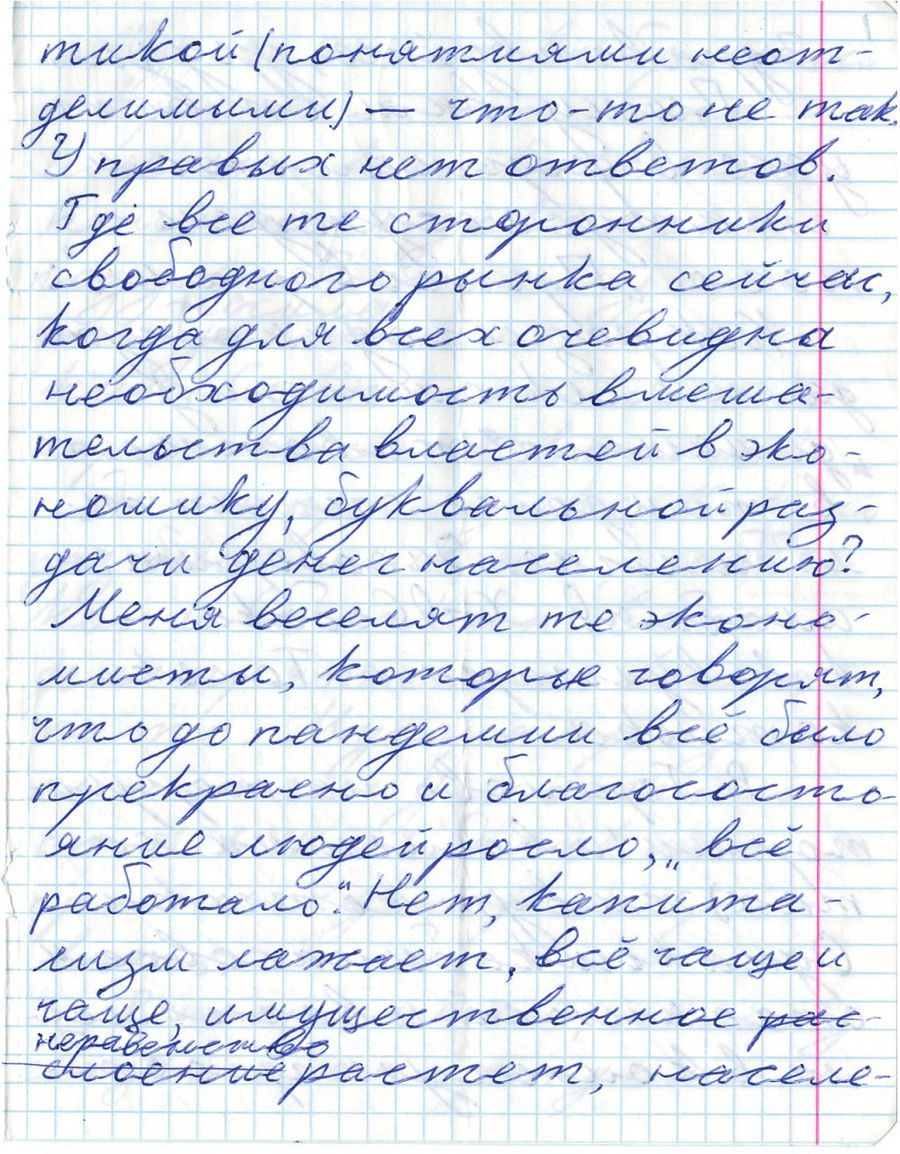 тикой (понятиями неот-
делимыми) — что-то не так.
У правых нет ответов.
Где все те сторонники
свободного рынка сейчас,
когда для всех очевидна
необходимость вмеша-
тельства властей в эко-
номику, буквальной раз-
дачи денег населению?
Меня веселят те эконо-
мисты, которые говорят,
что до пандемии всё было
прекрасно и благососто-
яние людей росло, „всё
работало“. Нет, капита-
лизм лажает, всё чаще и
чаще, имущественное рас-
неравенство
слоение растет, населе-